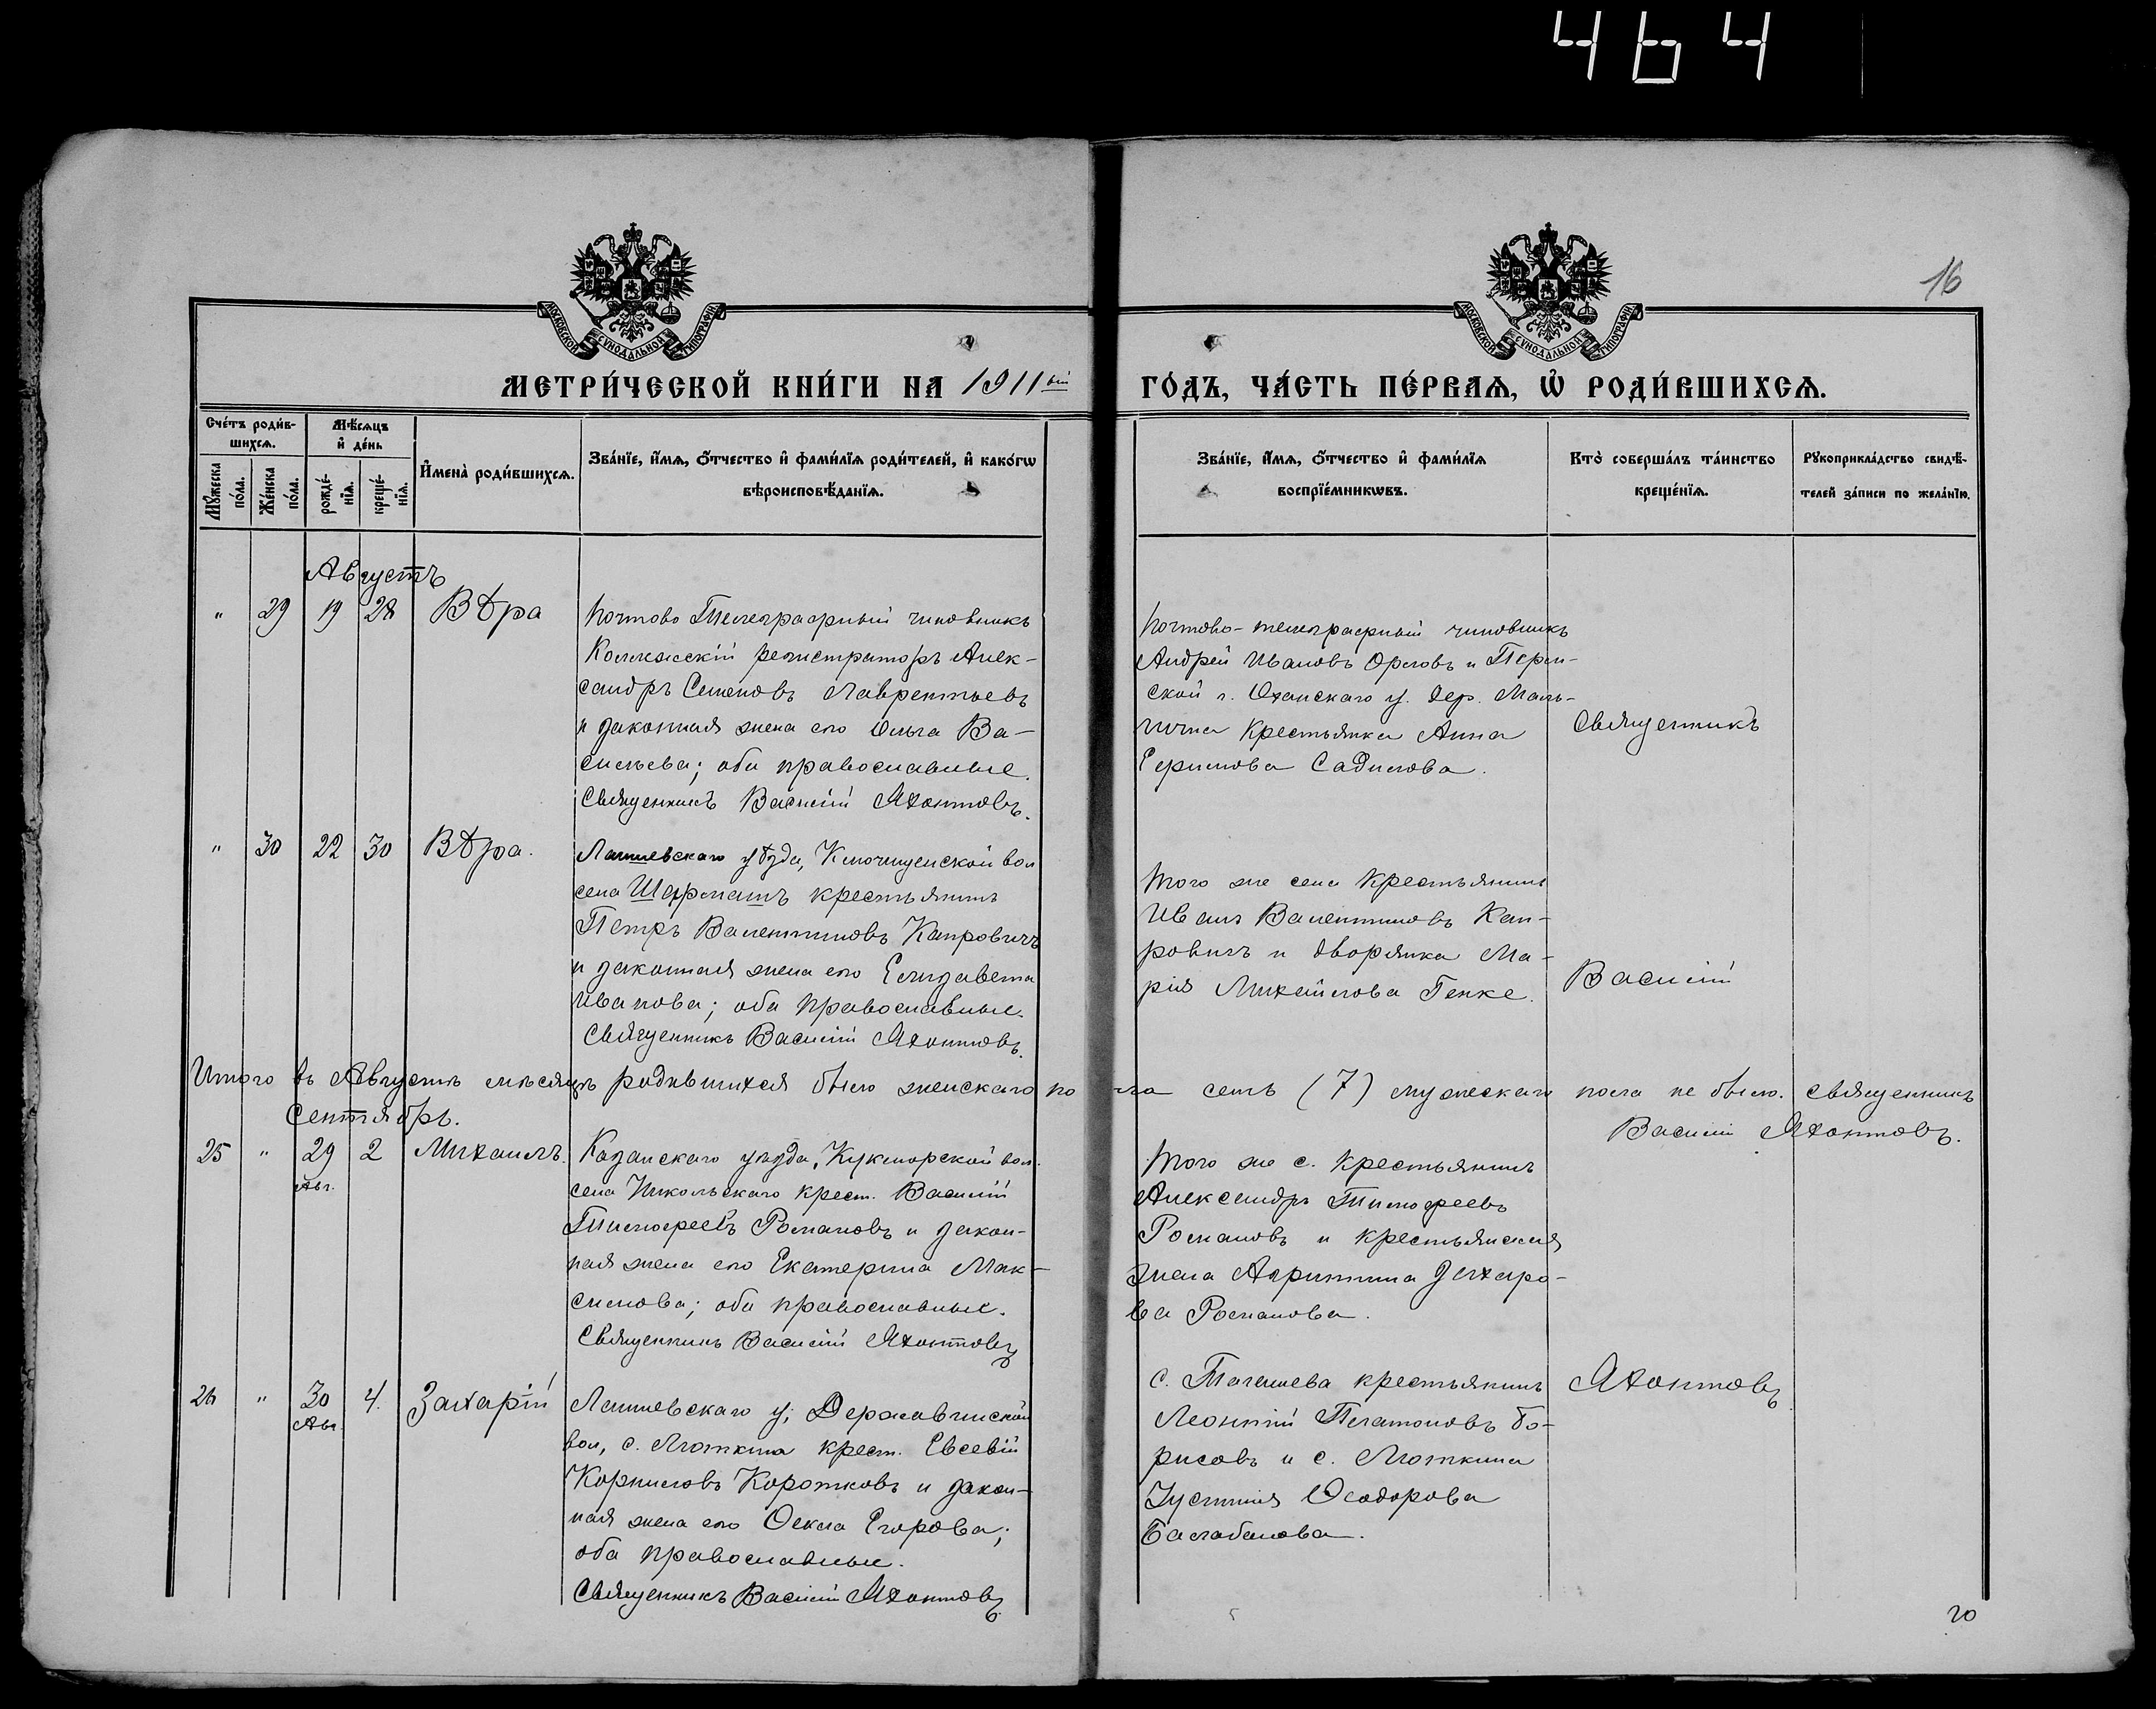 464
16
МОСКОВСКОЙ СУНОДАЛЬНОЙ ТИПОГРАФІИ
МОСКОВСКОЙ СУНОДАЛЬНОЙ ТИПОГРАФІИ
МЕТРИ́ЧЕСКОЙ КНИ́ГИ НА 1911ый ГО́ДЪ, ЧА́СТЬ ПЕ́РВАѦ, Ѡ҆ РОДИ́ВШИХСѦ.
Сче́тъ роди́в-
шихсѧ.
Мꙋ́жеска по́ла.
Же́нска по́ла.
Мѣ́сѧцъ
и҆ де́нь
рожде́-
нїѧ.
креще́-
нїѧ.
И҆мена̀ роди́вшихсѧ.
Зва́нїе, и҆́мѧ, ѻ҆́тчество и҆ фами́лїѧ роди́телей, и҆ како́гѡ
вѣроисповѣ́данїѧ.
Зва́нїе, и҆́мѧ, ѻ҆́тчество и҆ фами́лїѧ
воспрїе́мникѡвъ.
Кто̀ соверша́лъ та́инство
креще́нїѧ.
Рꙋкоприкла́дство свидѣ́-
телей за́писи по жела́нїю.
Августъ
" 29 19 28 Вѣра
Почтово Телеграфный чиновникъ
Коллежскій регистраторъ Алек-
сандръ Семеновъ Лаврентьевъ
и законная жена его Ольга Ва-
сильева; оба православные.
Священникъ Василій Яхонтовъ.
Почтово-телеграфный чиновникъ
Андрей Ивановъ Орловъ и Перм-
ской г. Оханскаго у. дер. Маль-
чина крестьянка Анна
Ефимова Садилова.
Священникъ
" 30 22 30 Вѣра.
Лаишевскаго уѣзда, Ключищенской вол
села Шармашъ крестьянинъ
Петръ Валентиновъ Капровичъ
и законная жена его Елизавета
Иванова; оба православные.
Священникъ Василій Яхонтовъ.
Того же села крестьянинъ
Иванъ Валентиновъ Кап-
ровичъ и дворянка Ма-
рія Михайлова Генке.
Василій
Итого въ Августѣ мѣсяцѣ родившихся было женскаго пола семь (7) мужескаго пола не было. Священникъ
Василій Яхонтовъ.
Сентябрь.
25 " 29 2 Михаилъ.
Авг.
Казанскаго уѣзда, Кукморской вол.
села Никольскаго крест. Василій
Тимофеевъ Романовъ и закон-
ная жена его Екатерина Мак-
симова; оба православные.
Священникъ Василій Яхонтовъ
Того же с. крестьянинъ
Александръ Тимофеевъ
Романовъ и крестьянская
жена Агрипина Захаро-
ва Романова.
26 " 30 4. Захарій
Авг.
Лаишевскаго у; Державинской
вол, с. Люткина крест. Евсевій
Корниловъ Коротковъ и закон-
ная жена его Ѳекла Егорова;
оба православные.
Священникъ Василій Яхонтовъ
с. Тагашева крестьянинъ
Леонтій Платоновъ Бо-
рисовъ и с. Люткина
Іустинія Ѳеодорова
Балабанова.
Яхонтовъ
20